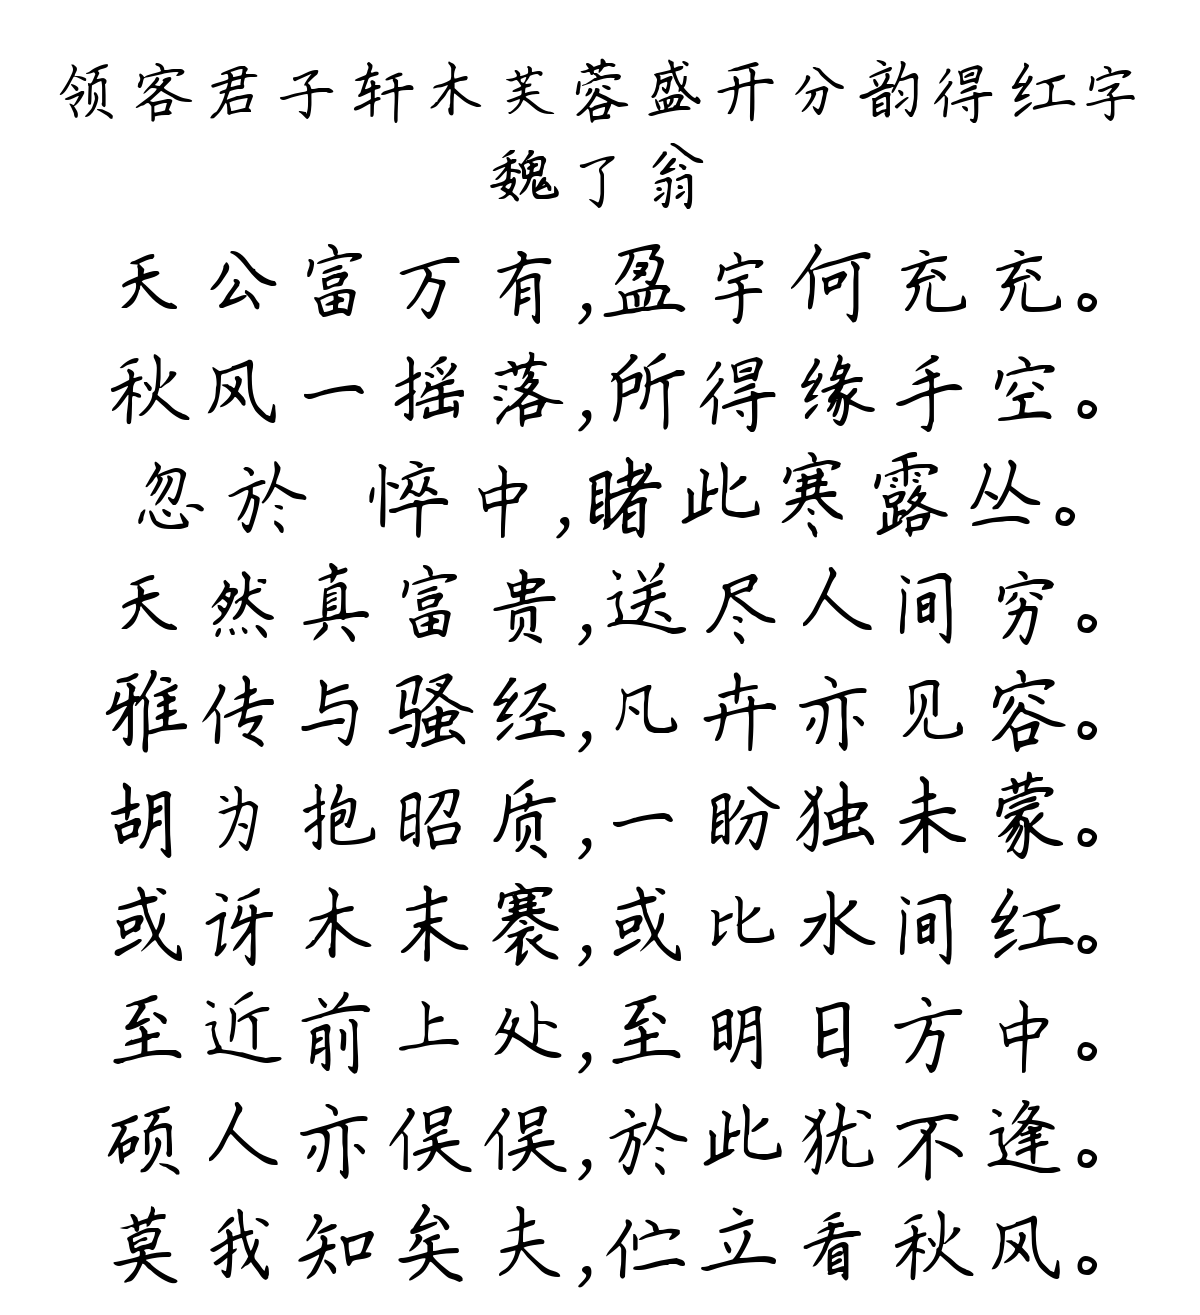 领客君子轩木芙蓉盛开分韵得红字
魏了翁
天公富万有,盈宇何充充。
秋风一摇落,所得缘手空。
忽於 悴中,睹此寒露丛。
天然真富贵,送尽人间穷。
雅传与骚经,凡卉亦见容。
胡为抱昭质,一盼独未蒙。
或讶木末褰,或比水间红。
至近前上处,至明日方中。
硕人亦俣俣,於此犹不逢。
莫我知矣夫,伫立看秋风。